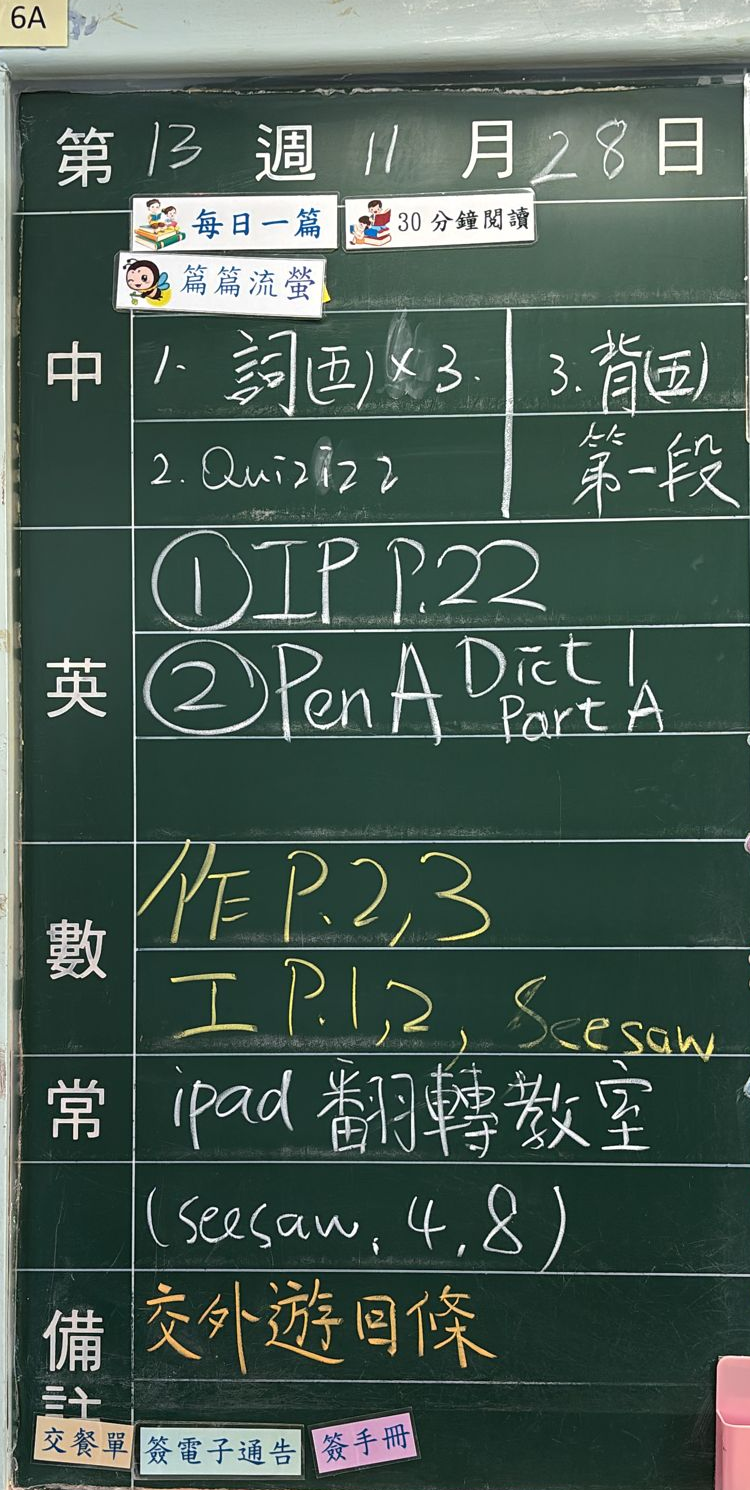 6A
第 13 週 11 月 28 日
每日一篇 30分鐘閱讀
篇篇流螢
中
1. 詞(五)×3.
2. Quizizz
3. 背(五)
第一段
英
① IP P.22
② Pen A Dict 1
Part A
數
作 P.2,3
工 P.1,2, Seesaw
常
ipad 翻轉教室
(seesaw, 4, 8)
備註
交外遊回條
交餐單 簽電子通告 簽手冊